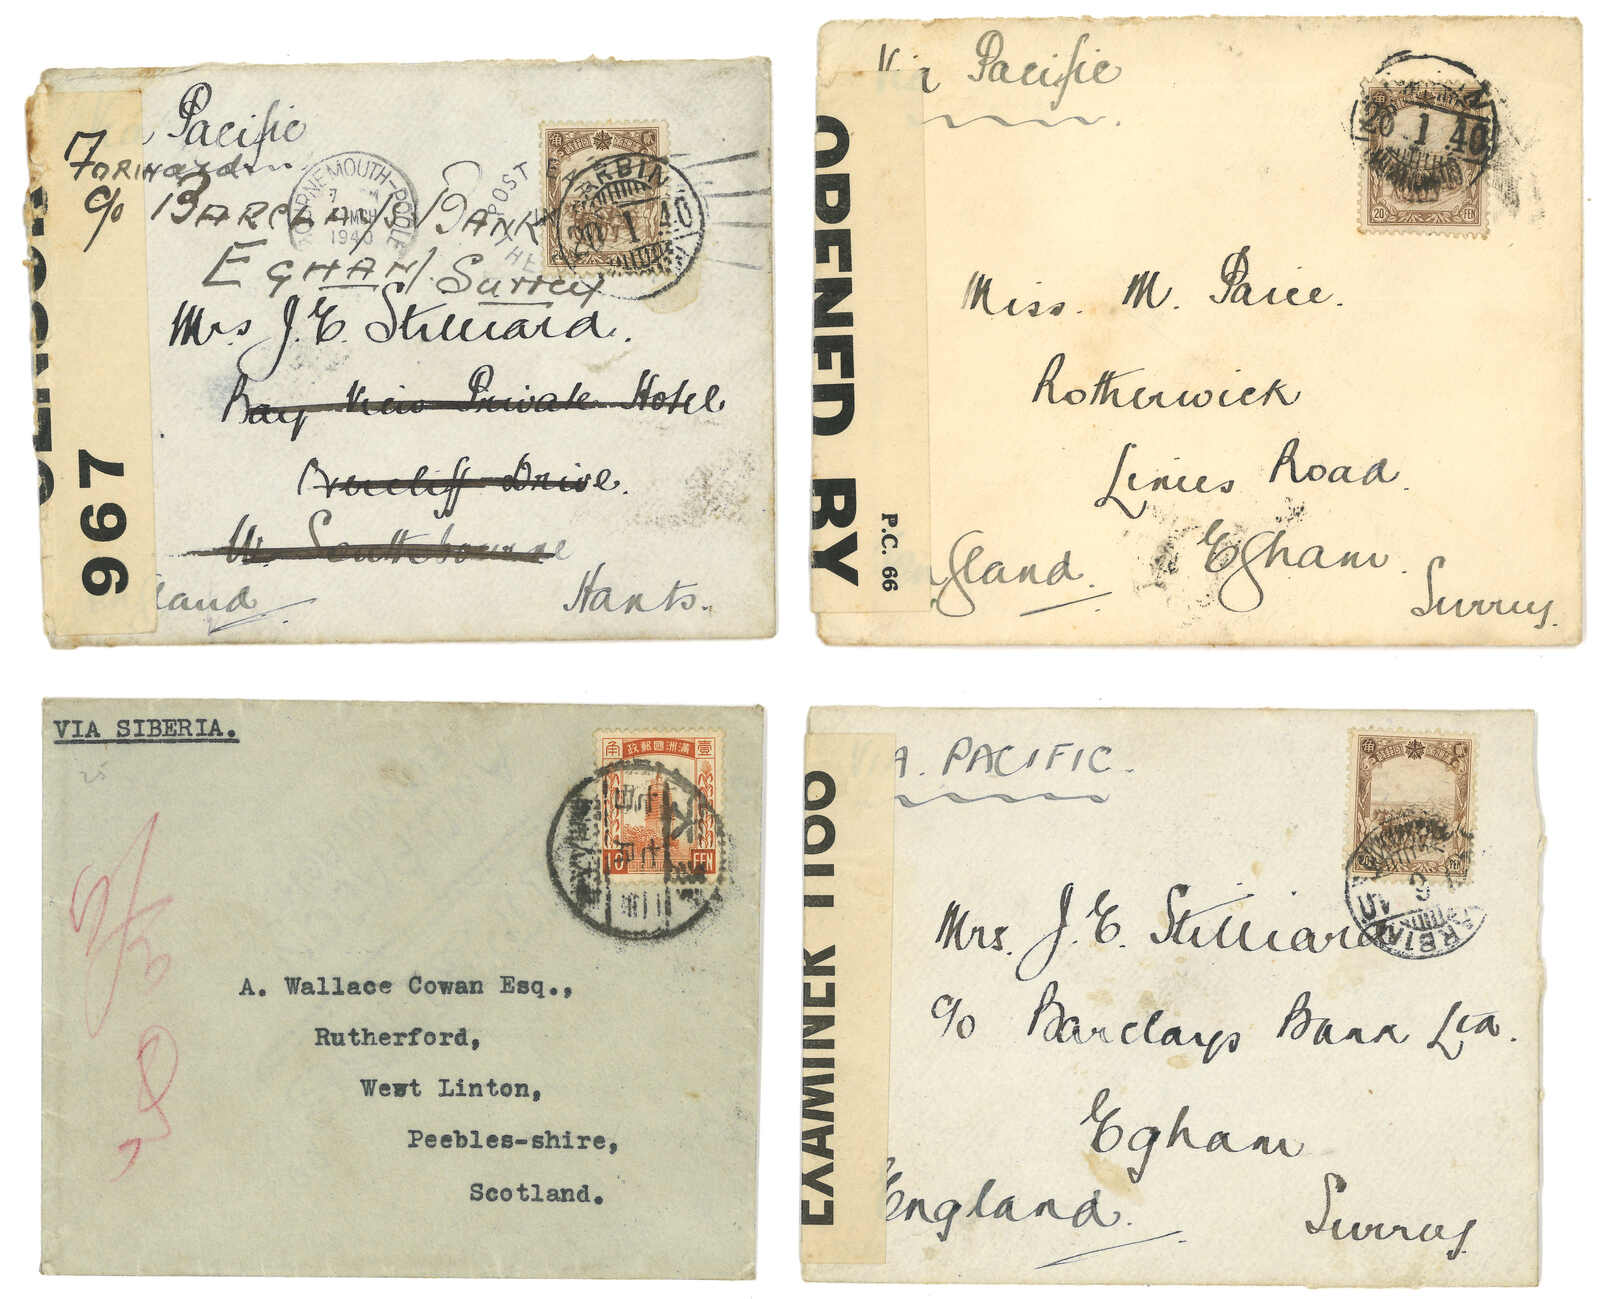 Pacific
Forward
c/o Barclays Bank
Egham Surrey
BOURNEMOUTH-POOLE
1940
POST
THE
HARBIN
20 1 .40
Mrs J. E. Stilliard.
Bay View Private Hotel
Drive.
W. Southbourne
land
Hants.
CENSOR
967
Via Pacific
20 .1 .40
20 FEN
Miss. M. Paice.
Rotherwick
Linces Road.
Egham.
England.
Surrey.
OPENED BY
P.C. 66
VIA SIBERIA.
25
政郵國洲滿
角 壹
10 FEN
A. Wallace Cowan Esq.,
Rutherford,
West Linton,
Peebles-shire,
Scotland.
VIA. PACIFIC.
20 FEN
Mrs. J. E. Stilliard
c/o Barclays Bank Ltd.
Egham
England.
Surrey.
EXAMINER 1100